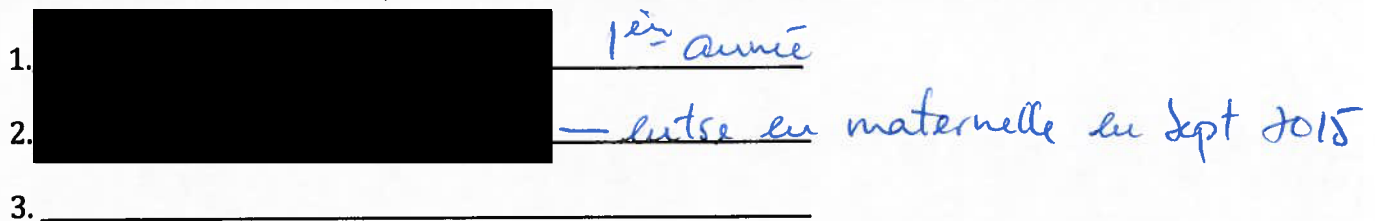 1. 1ère année
2. — entre en maternelle en Sept 2015
3.